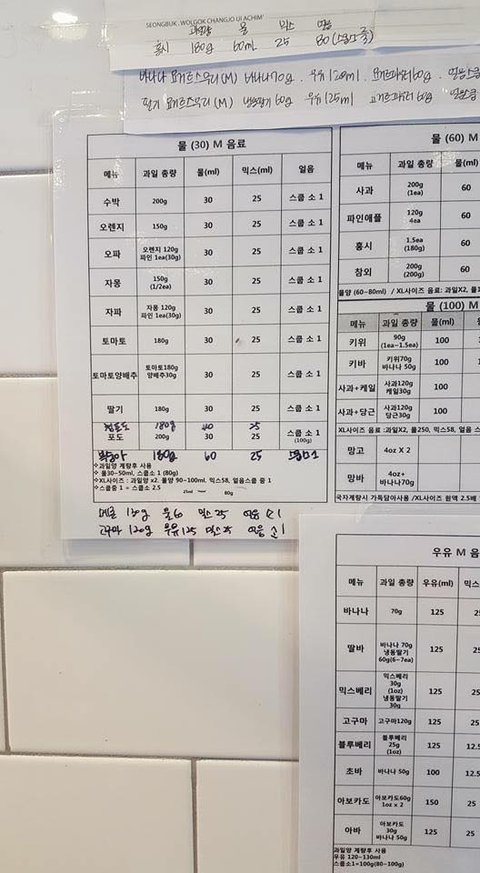 SEONGBUK . WOLGOK CHANGJO UI ACHIM
과일양 물 믹스 얼음
홍시 180g 60ml 25 80
바나나 요거트스무디(M) 바나나70g . 우유 120ml . 60g .
딸기 요거트스무디(M) 냉동딸기 60g 우유 125ml 60g
물 (30) M 음료
메뉴 과일 총량 물(ml) 믹스(ml) 얼음
수박 200g 30 25 스쿱 소 1
오렌지 150g 30 25 스쿱 소 1
오파 오렌지 120g 파인 1ea(30g) 30 25 스쿱 소 1
자몽 150g (1/2ea) 30 25 스쿱 소 1
자파 자몽 120g 파인 1ea(30g) 30 25 스쿱 소 1
토마토 180g 30 25 스쿱 소 1
토마토양배추 토마토180g 양배추30g 30 25 스쿱 소 1
딸기 180g 30 25 스쿱 소 1
180g 40 25
포도 200g 30 25 스쿱 소 1 (100g)
복숭아 180g 60 25
❖과일양 계량후 사용
❖물30~50ml, 스쿱소 1 (80g)
❖XL사이즈 : 과일양 x2, 물양 90~100ml, 믹스58, 얼음스쿱 중 1
❖스쿱중 1 = 스쿱소 2.5
25ml 80g
메론 150g 물60 믹스 25 얼음 소 1
고구마 120g 우유 125 믹스 25 얼음 소 1
물 (60) M
메뉴 과일 총량 물(ml)
사과 200g (1ea) 60
파인애플 120g 4ea 60
홍시 1.5ea (180g) 60
참외 200g (200g) 60
물양 (60~80ml) / XL사이즈 음료: 과일X2, 물
물 (100) M
메뉴 과일 총량 물(ml)
키위 90g (1ea~1.5ea) 100
키바 키위70g 바나나 50g 100
사과+케일 사과120g 케일30g 100
사과+당근 사과120g 당근30g 100
XL사이즈 음료 :과일X2, 물250, 믹스58, 얼음 스
망고 4oz X 2
망바 4oz+ 바나나70g
국자계량시 가득담아사용 /XL사이즈 원액 2.5배
우유 M 음
메뉴 과일 총량 우유(ml) 믹스
바나나 70g 125 25
딸바 바나나 70g 냉동딸기 60g(6~7ea) 125 25
믹스베리 믹스베리 30g (1oz) 냉동딸기 30g 125 25
고구마 고구마120g 125 25
블루베리 블루베리 25g (1oz) 125 12.5
초바 바나나 50g 100 12.5
아보카도 아보카도60g 1oz x 2 150 25
아바 아보카도 30g 바나나 50g 125 25
과일양 계량후 사용
우유 120~130ml
스쿱소1=100g(80~100g)